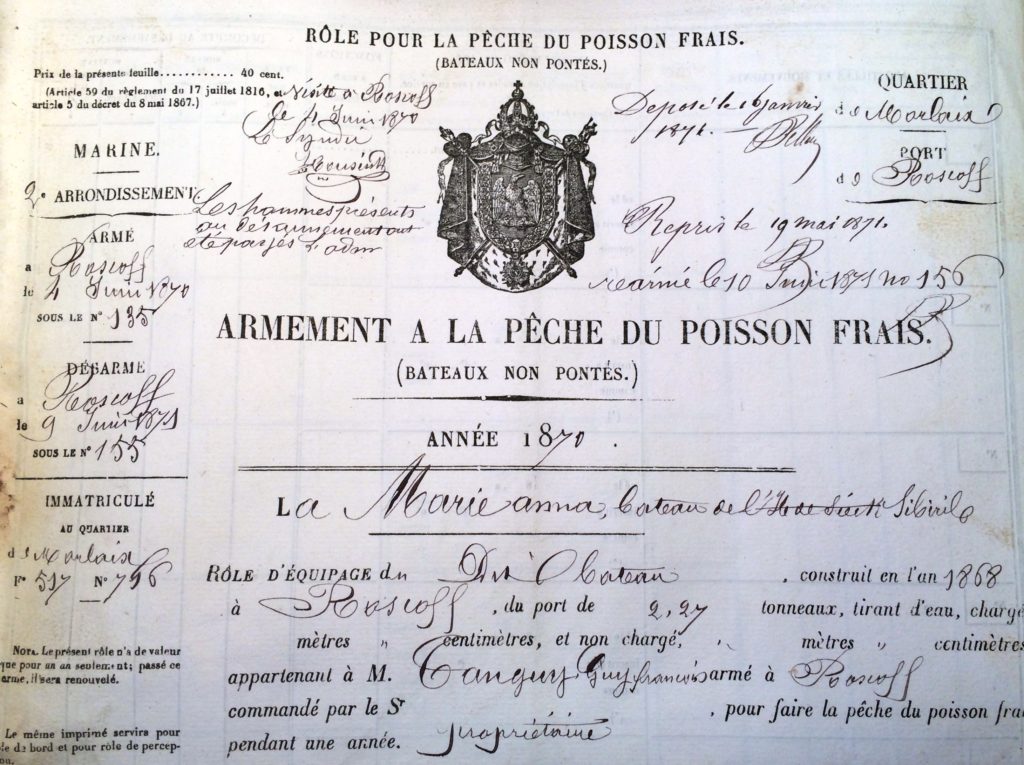 RÔLE POUR LA PÊCHE DU POISSON FRAIS.
(BATEAUX NON PONTÉS.)
Prix de la présente feuille........... 40 cent.
(Article 59 du règlement du 17 juillet 1816, et
article 5 du décret du 8 mai 1867.)
Visité à Roscoff
le 4 Juin 1870
Le Syndic
Déposé le 16 janvier
1871.
QUARTIER
de Morlaix
PORT
de Roscoff
MARINE.
2e ARRONDISSEMENT
Les hommes présents
au désarmement ont
été payés
Repris le 19 mai 1871.
réarmé le 10 Juin 1871 no 156
ARMÉ
a Roscoff
le 4 Juin 1870
SOUS LE N° 135
DÉSARMÉ
a Roscoff
le 9 Juin 1871
SOUS LE N° 155
ARMEMENT A LA PÊCHE DU POISSON FRAIS.
(BATEAUX NON PONTÉS.)
ANNÉE 1870.
IMMATRICULÉ
AU QUARTIER
de Morlaix
F° 517 N° 796
La Marie anna, bateau de l' Sibiril
RÔLE D'ÉQUIPAGE du Dit Bateau, construit en l'an 1868
à Roscoff, du port de 2,27 tonneaux, tirant d'eau, chargé
mètres „ centimètres, et non chargé, „ mètres „ centimètres
appartenant à M. Tanguy Guy françois armé à Roscoff
commandé par le Sr propriétaire, pour faire la pêche du poisson frai
pendant une année.
NOTA. Le présent rôle n'a de valeur
que pour un an seulement; passé ce
arme, il sera renouvelé.
Le même imprimé servira pour
le de bord et pour rôle de percep-
on.